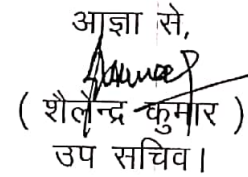 आज्ञा से,
( शैलेन्द्र कुमार )
उप सचिव।